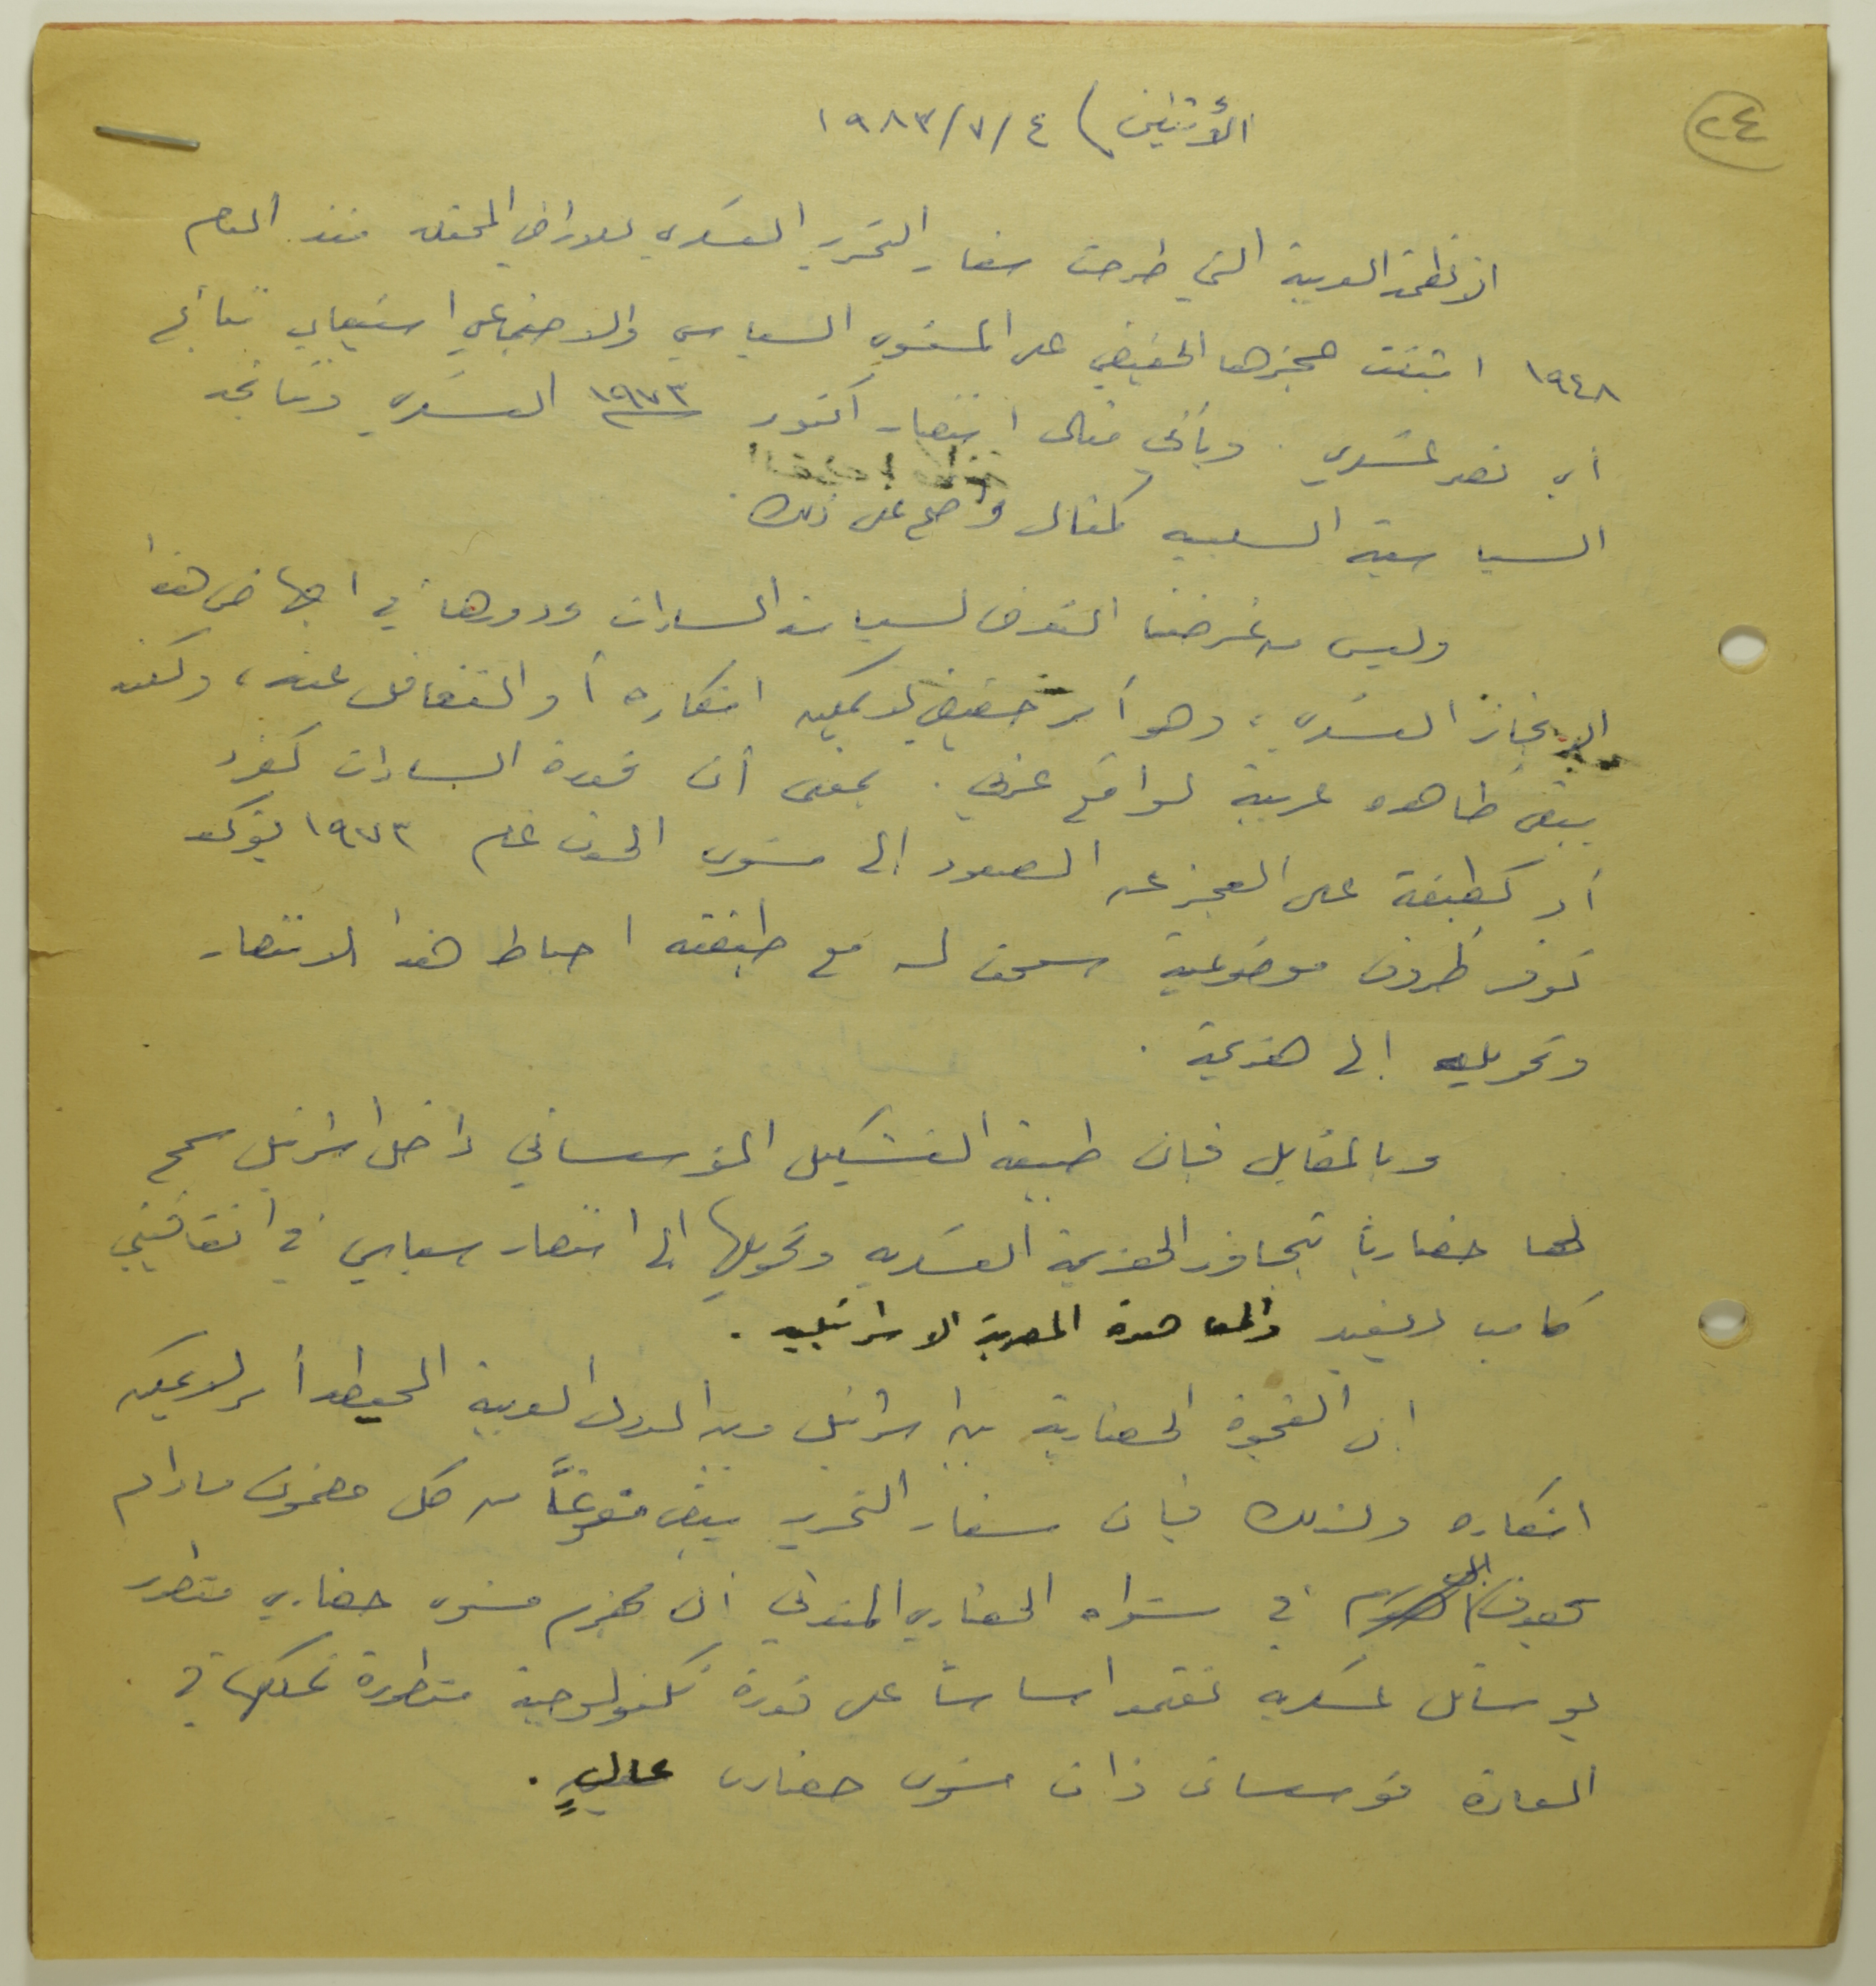 ٢٤
الأثنين ) ٤/٧/١٩٨٣
الانظمة العربية التي طرحت شعار التحرير العسكري للاراضي المحتلة منذ العام
١٩٤٨ اثبتت عجزها الحقيقي على المستوى السياسي والاجتماعي استيعاب نتائج
أي نصر عسكري . ويأتي مثال انتصار اكتوبر ١٩٧٣ العسكري ونتائجه
السياسية السلبيه كمثال واضح على ذلك .
وليس من غرضنا التعرض لسياسة السادات ودورها في اجهاض هذا
الانجاز العسكري ، وهو أمر حقيقي لا يمكن انكاره أو التغافل عنه ، ولكنه
يبقى ظاهره عربية لواقع عربي . بمعنى أن قدرة السادات كفرد
أو كطبقة على العجز عن الصعود الى مستوى الحدث عام ١٩٧٣ يؤكد
توفر ظروف موضوعية سمحت له مع طبقته احباط هذا الانتصار
وتحويله الى هزيمة .
وبالمقابل فإن طبيعة التشكيل المؤسساتي داخل اسرائيل سمح
لها حضارياً تجاوز الهزيمة العسكريه وتحويلها الى انتصار سياسي في اتفاقيتي
كامب ديفيد والمعاهدة المصرية الاسرائيلية .
ان الفجوة الحضارية بين اسرائيل وبين الدول العربية المحيطة أمر لا يمكن
انكاره ولذلك فإن شعار التحرير يبقى مفرغاً من كل مضمون مادام
في مستواه الحضاري المتدني أن يهزم مستوى حضاري متطور
بوسائل عسكريه تعتمد اساساً على قدرة تكنولوجية متطورة تملكها في
العادة مؤسسات ذات مستوى حضاري عالٍ .